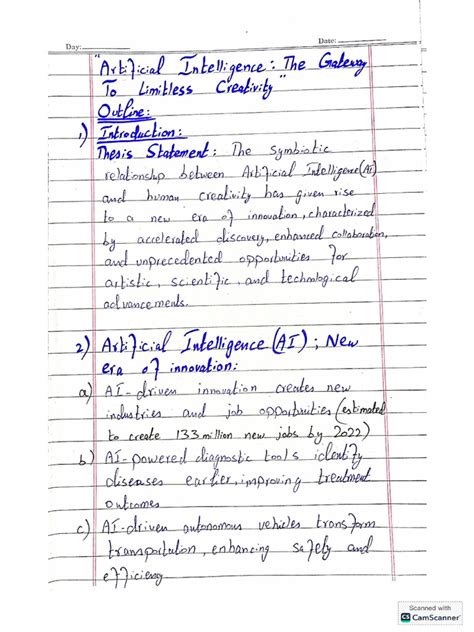 Day: Date:
"Artificial Intelligence: The Gateway
To Limitless Creativity"
Outline:
1) Introduction:
Thesis Statement: The symbiotic
relationship between Artificial Intelligence (AI)
and human creativity has given rise
to a new era of innovation, characterized
by accelerated discovery, enhanced collaboration,
and unprecedented opportunities for
artistic, scientific, and technological
advancements.
2) Artificial Intelligence (AI); New
era of innovation:
a) AI-driven innovation creates new
industries and job opportunities (estimated
to create 133 million new jobs by 2022)
b) AI-powered diagnostic tools identify
diseases earlier, improving treatment
outcomes
c) AI-driven autonomous vehicles transform
transportation, enhancing safety and
efficiency
Scanned with
CS CamScanner